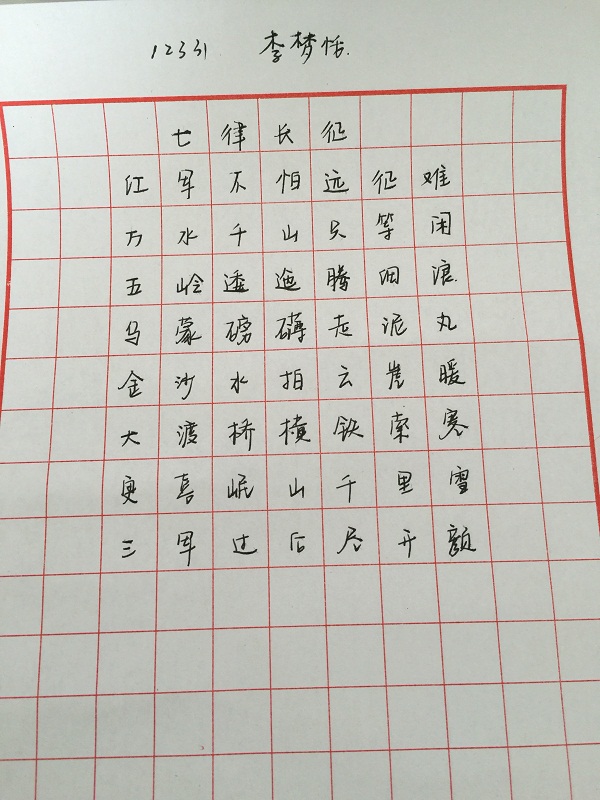 12331 李梦恬
七律长征
红军不怕远征难
万水千山只等闲
五岭逶迤腾细浪
乌蒙磅礴走泥丸
金沙水拍云崖暖
大渡桥横铁索寒
更喜岷山千里雪
三军过后尽开颜